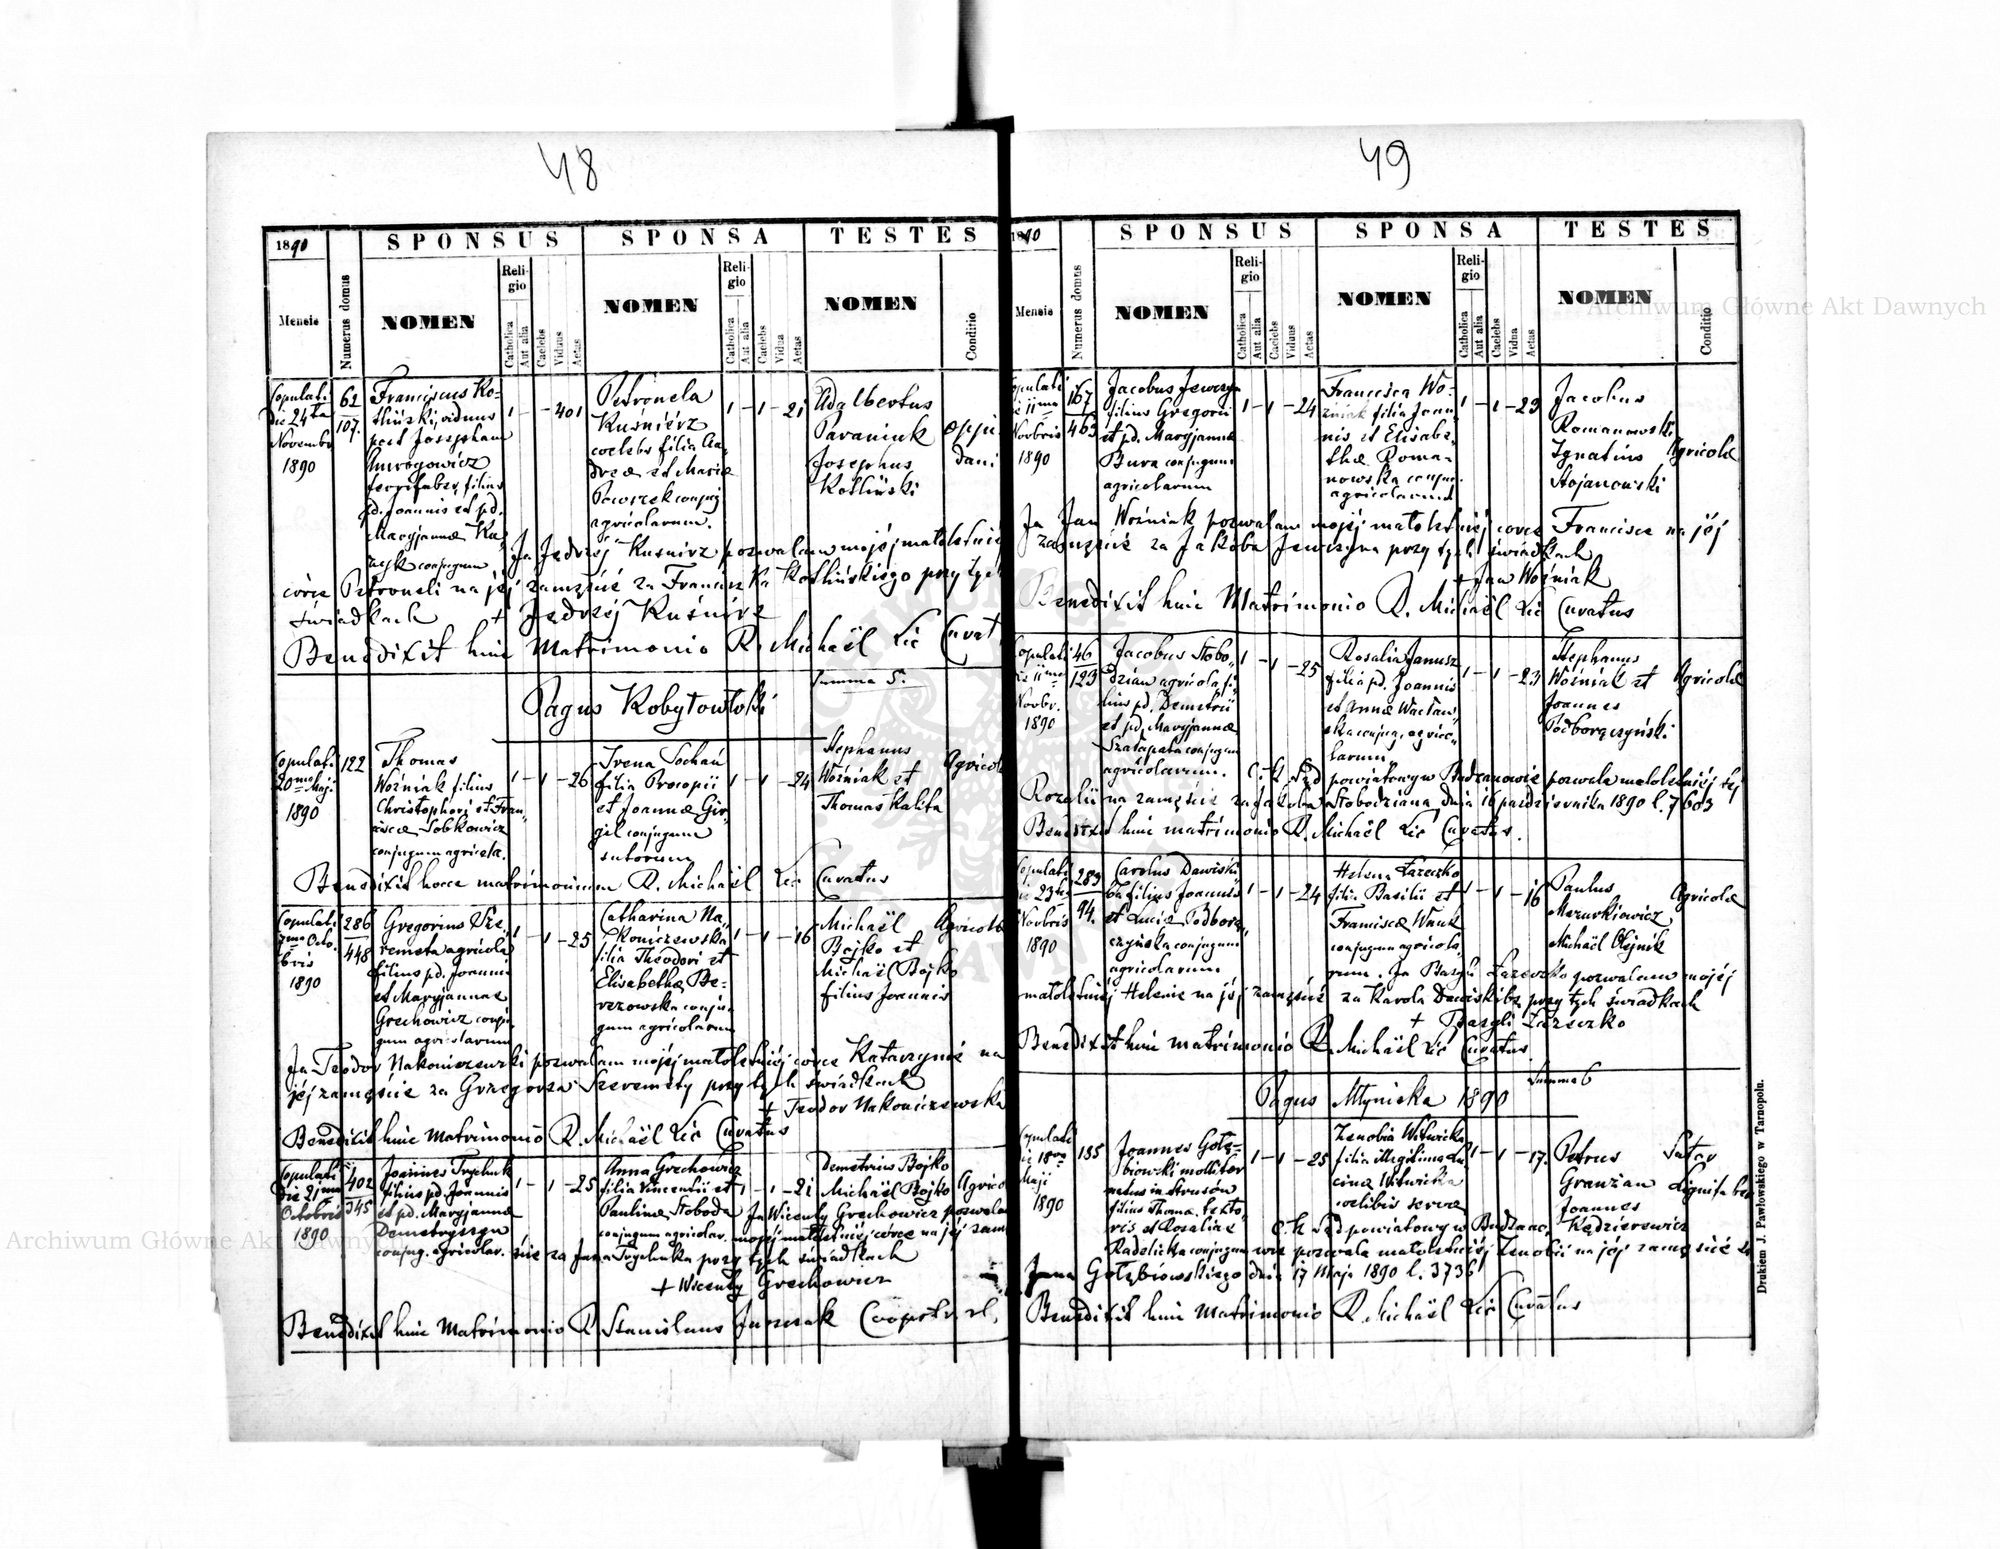 48
1890
SPONSUS
SPONSA
TESTES
Mensis
Numerus domus
NOMEN
Religio
Catholica
Aut alia
Caelebs
Viduus
Aetas
NOMEN
Religio
Catholica
Aut alia
Caelebs
Vidua
Aetas
NOMEN
Conditio
Copulati
die 24ta
Novembr
1890
62
107.
Franciscus Ko-
tliński viduus
post Josepham
filius
pd. Joannis et pd.
Maryjannae Ka-
conjugum
1 - - 40 1
Petronela
Kuśnierz
coelebs filia An-
dreae et Mariae
Pawszek conjug
agricolarum.
1 - 1 - 21
Adalbertus
Paraniuk
Josephus
Kotliński
oppi
dani
Ja Jędrzej Kuśnirz pozwalam mojéj małoletniéj
córce Petroneli na jéj zamęście za Franciszka Kotlińskiego przy tych
świadkach + Jędrzej Kuśnirz
Benedixit huic Matrimonio R. Michaël Lic Curat
Summa 5.
Pagus Kobyłowłoki
Copulati
20mo Maji
1890
122
Thomas
Woźniak filius
Christophori et Fran-
ciscae Sobkowicz
conjugum agricola.
1 - 1 - 26
Irena Sochań
filia Procopii
et Joannae Gir-
gil conjugum
sutorum
1 - 1 - 24
Stephanus
Woźniak et
Thomas Kalita
Agricol
Benedixit hocce matrimonium R. Michaël Lic Curatus
Copulati
7mo Octo-
bris
1890
286
448
Gregorius Sze-
remeta agricola
filius pd. Joannis
et Maryjannae
Grechowicz conju-
gum agricolarum
1 - 1 - 25
Catharina Na-
koniczewska
filia Theodori et
Elisabethae Be-
rezowska conju-
gum agricolarum
1 - 1 - 16
Michaël
Bojko et
Michaël Bojko
filius Joannis
Agricol
Ja Teodor Nakoniczewski pozwalam mojéj małoletniéj córce Katarzynie na
jéj zamęście za Grzegorza Szeremety przy tych świadkach
+ Teodor Nakoniczewski
Benedixit huic Matrimonio R. Michaël Lic Curatus
Copulati
die 21mo
Octobris
1890
402
345
Joannes Trychuk
filius pd. Joannis
et pd. Maryjannae
Demetryszyn
conjug. agricolar.
1 - 1 - 25
Anna Grechowicz
filia Vincentii et
Paulinae Słoboda
conjugum agricolar.
1 - 1 - 21
Demetrius Bojko
Michaël Bojko
Agrico
Ja Wicenty Grechowicz pozwalam
mojéj małoletniéj córce na jéj zam
ście za Jana Trychuka przy tych świadkach
+ Wicenty Grechowicz
Benedixit huic Matrimonio R. Stanislaus Juszczak Cooperator
49
1890
SPONSUS
SPONSA
TESTES
Mensis
Numerus domus
NOMEN
Religio
Catholica
Aut alia
Caelebs
Viduus
Aetas
NOMEN
Religio
Catholica
Aut alia
Caelebs
Vidua
Aetas
NOMEN
Conditio
Copulati
die 11ma
Novbris
1890
167
463
Jacobus Jewczyn
filius Gregorii
et pd. Maryjannae
Bura conjugum
agricolarum
1 - 1 - 24
Francisca Wo-
źniak filia Joan-
nis et Elisabe-
thae Roma-
nowska conjug.
agricolarum
1 - 1 - 23
Jacobus
Romanowski
Ignatius
Stojanowski
Agricolae
Ja Jan Woźniak pozwalam mojéj małoletniéj córce Francisce na jéj
zamęście za Jakóba Jewczyna przy tych świadkach
+ Jan Woźniak
Benedixit huic Matrimonio R. Michaël Lic Curatus
Copulati
die 11ma
Novbr.
1890
46
123
Jacobus Słobo-
dzian agricola fi-
lius pd. Demetrii
et pd. Maryjannae
Szałapata conjugum
agricolarum.
1 - 1 - 25
Rosalia Janusz
filia pd. Joannis
et Annae Wacław-
ska conjug. agrico-
larum
1 - 1 - 23
Stephanus
Woźniak et
Joannes
Podborączyński
Agricolae
C. k. Sąd powiatowy w Budzanowie pozwala małoletniéj téj
Rozalii na zamęście za Jakóba Słobodziana dnia 16 października 1890 l. 7603
Benedixit huic matrimonio R. Michaël Lic Curatus.
Copulati
die 23tia
Novbris
1890
283
94.
Carolus Dawiski-
ba filius Joannis
et Luciae Podborą-
czyńska conjugum
agricolarum
1 - 1 - 24
Helena Łazeczko
filia Basilii et
Franciscae Wnuk
conjugum agricola-
rum.
1 - 1 - 16
Paulus
Mazurkiewicz
Michaël Olejnik
Agricolae
Ja Bazyli Łazeczko pozwalam mojéj
małoletniéj Helenie na jéj zamęście za Karola Dawiskibę przy tych świadkach
+ Bazyli Łazeczko
Benedixit huic matrimonio R. Michaël Lic Curatus
Summa 6
Pagus Młyniska 1890
Copulati
die 18va
Maji
1890
185
Joannes Gołę-
biowski molitor
natus in Strusów
filius Thoma. texto-
ris et Rosaliae
Radelicka conjugum
1 - 1 - 25
Zenobia Witwicka
filia illegitima Lu-
cinae Witwicka
coelibis servae
1 - 1 - 17.
Petrus
Graużan
Joannes
Kędzierewicz
Sutor
Lignifaber
C. k. Sąd powiatowy w Budzano-
wie pozwala małoletniéj Zenobii na jéj zamęście za
Jana Gołębiowskiego dnia 17 Maja 1890 l. 3736
Benedixit huic Matrimonio R. Michaël Lic Curatus
Drukiem J. Pawłowskiego w Tarnopolu.
Archiwum Główne Akt Dawnych
Archiwum Główne Akt Dawnych